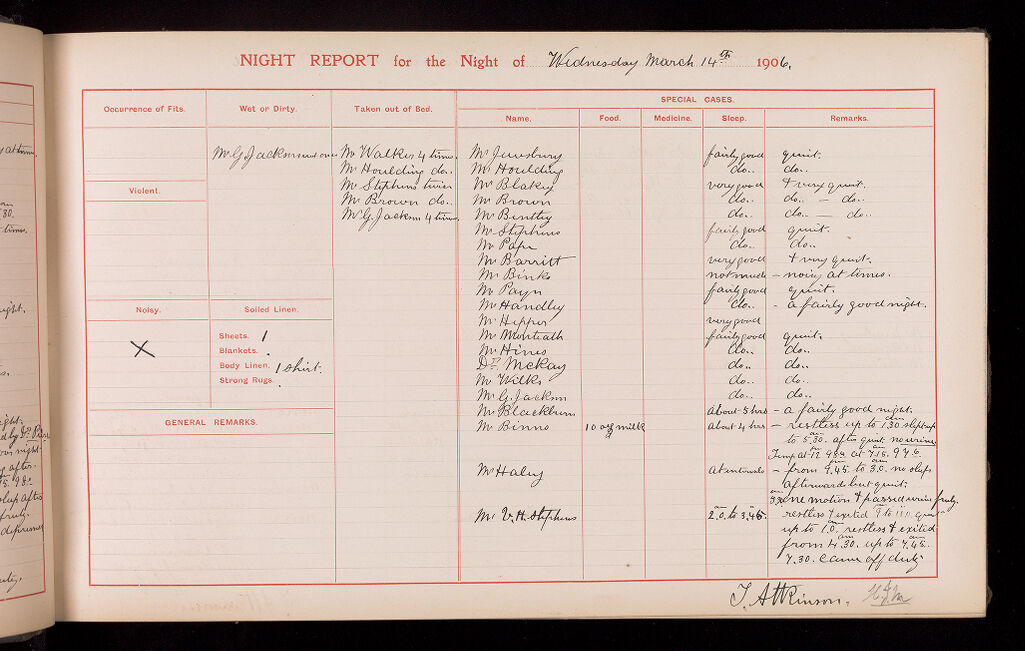 NIGHT REPORT for the Night of Wednesday March 14th 1906.
Occurrence of Fits.
Wet or Dirty.
Mr G. Jackson wet once
Taken out of Bed.
Mr Walker 4 times.
Mr Houlding do..
Mr Stephens twice
Mr Brown do..
Mr G. Jackson 4 times.
Violent.
Noisy.
X
Soiled Linen.
Sheets. 1
Blankets. .
Body Linen. 1 shirt.
Strong Rugs. .
GENERAL REMARKS.
SPECIAL CASES.
Name. Food. Medicine. Sleep. Remarks.
Mr Jewsbury fairly good quiet.
Mr Houlding do.. do..
Mr Blakey very good + very quiet.
Mr Brown do.. do.. — do..
Mr Bentley do.. do.. — do..
Mr Stephens fairly good quiet.
Mr Pape do.. do..
Mr Barritt very good + very quiet.
Mr Binks not much - noisy at times.
Mr Payn fairly good quiet.
Mr Handley do.. - a fairly good night.
Mr Hepper very good
Mr Monteath fairly good quiet.
Mr Hines do.. do..
Dr. McKay do.. do..
Mr Wilks do.. do..
Mr G. Jackson do.. do..
Mr Blackburn about 5 hrs - a fairly good night.
Mr Binns 10 ozs milk about 4 hrs - restless up to 1.30 slept up
to 5.30. after quiet no urine
Temp at 12 98. at 7.15. 97.6.
Mr Haley at intervals - from 9.45. to 3.0. no sleep
afterwards but quiet.
3.30 one motion + passed urine freely.
Mr V. H. Stephens 2.0. to 3.45. restless + exited 9 to quiet
up to 1.0. restless + exited
from 4.30. up to 7.45.
7.30. Came off duty
T. Atkinson.